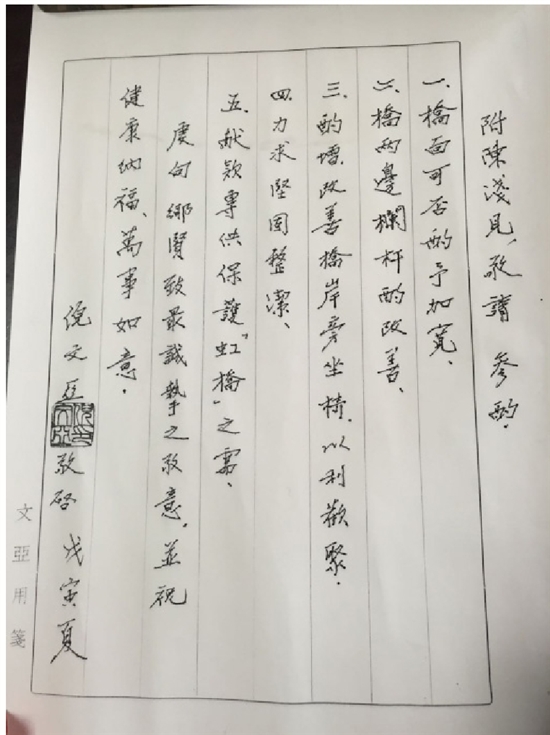 附陳淺見，敬請 參酌．
一、橋面可否酌予加寬、
二、橋兩邊欄杆酌改善、
三、酌增改善橋岸旁坐椅．以利歡聚．
四、力求堅固整潔、
五、献款專供保護“虹橋”之需、
虔向鄉賢致最誠摯之敬意，並祝
健康納福、萬事如意．
倪文亞 敬啓 戊寅夏
文亞用箋